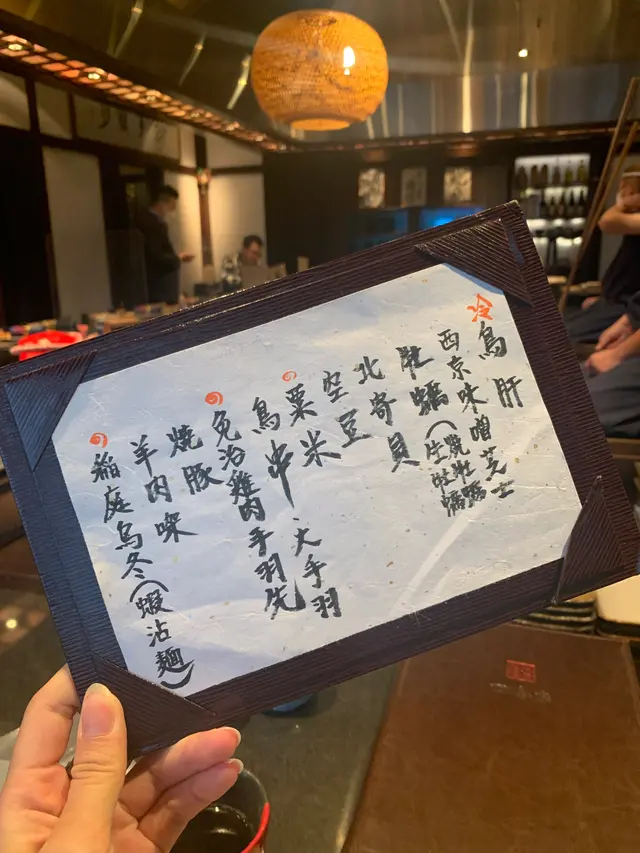 冷鳥肝
西京味噌芝士
牡蠣(生蠔牡蠣
北寄貝
空豆
粟米
鳥串、大手羽
免治雞肉手羽先
燒豚
羊肉
稲庭烏冬(蝦沾麵)